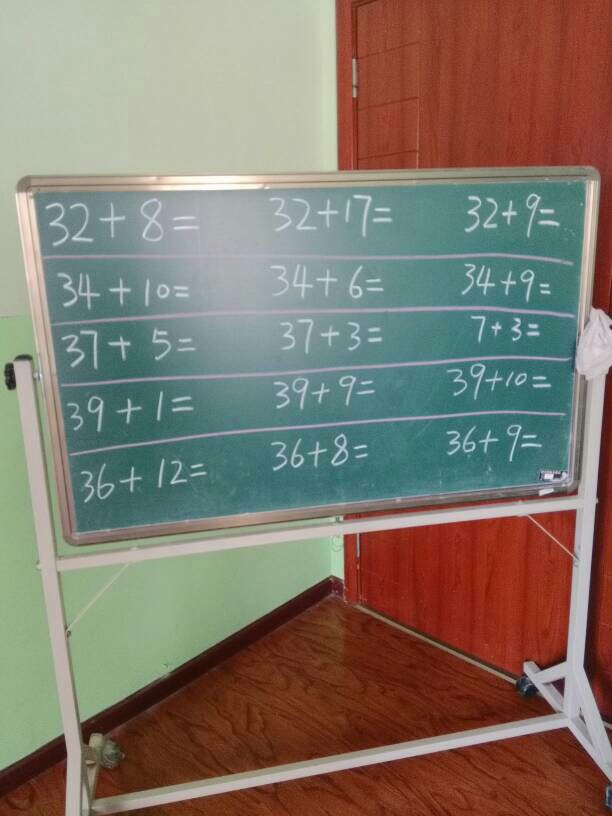 32+8= 32+17= 32+9=
34+10= 34+6= 34+9=
37+5= 37+3= 7+3=
39+1= 39+9= 39+10=
36+12= 36+8= 36+9=